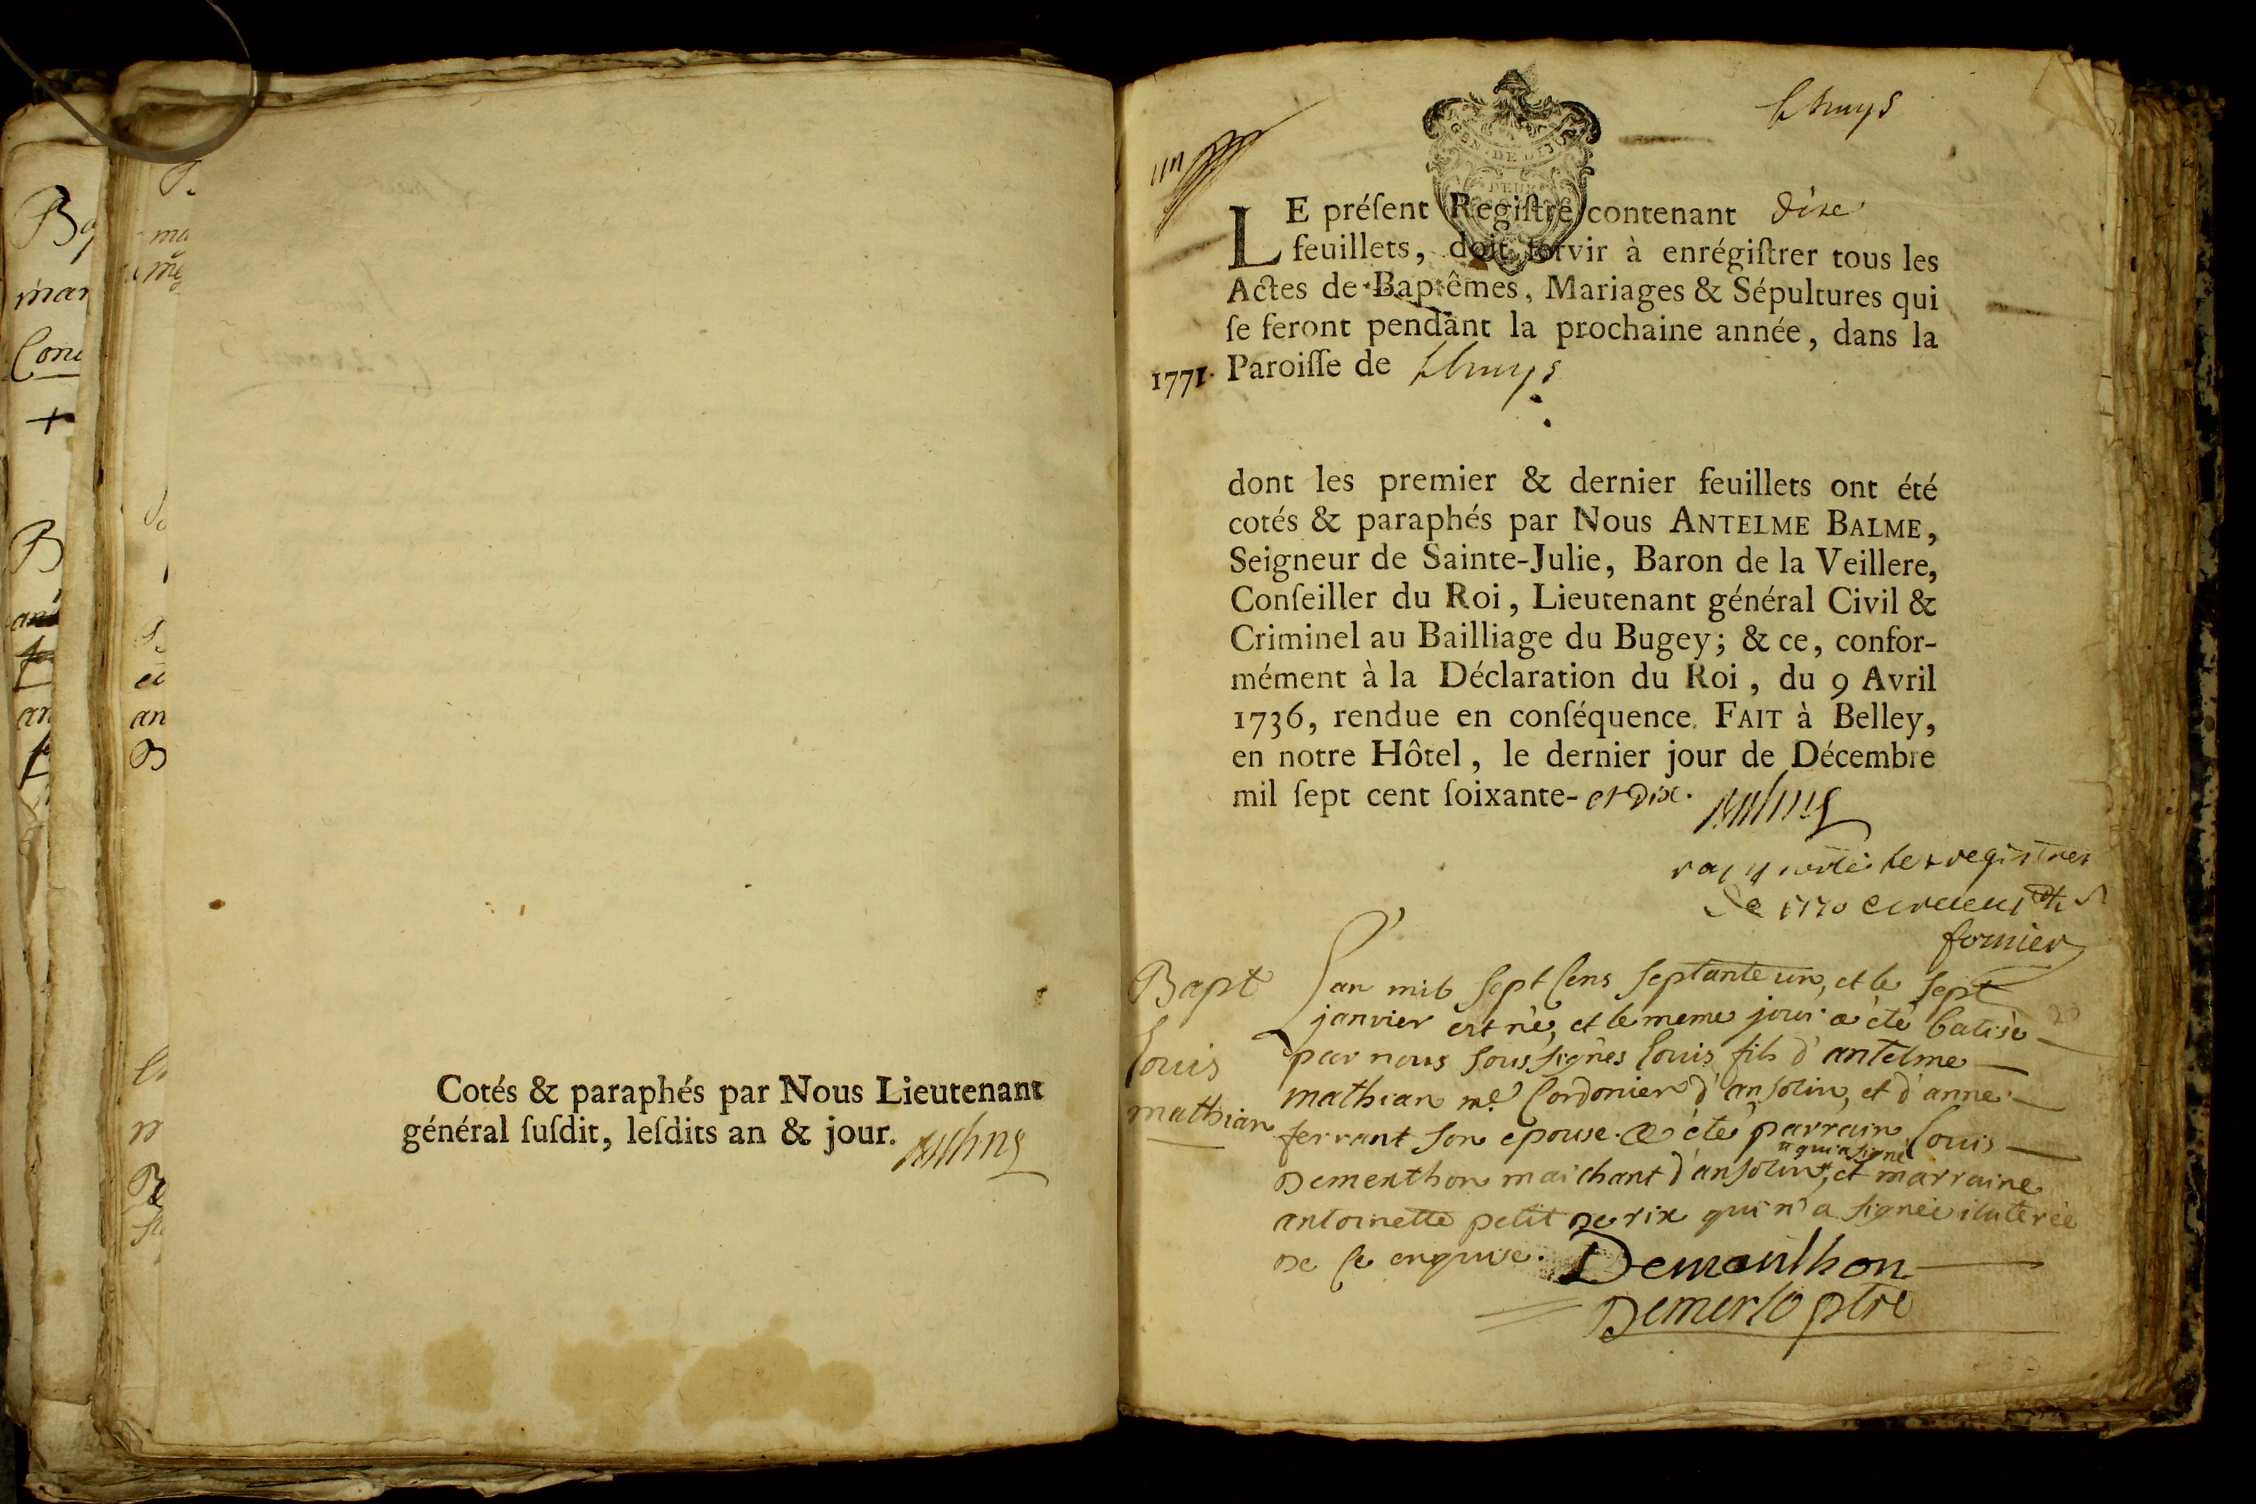 Cotés & paraphés par Nous Lieutenant
général ſuſdit, leſdits an & jour.
GEN. DE DIJON
LE préſent Regiſtre contenant dixe
feuillets, doit ſervir à enrégiſtrer tous les
Actes de Baptêmes, Mariages & Sépultures qui
ſe feront pendant la prochaine année, dans la
1771. Paroiſſe de
dont les premier & dernier feuillets ont été
cotés & paraphés par Nous ANTELME BALME,
Seigneur de Sainte-Julie, Baron de la Veillere,
Conſeiller du Roi, Lieutenant général Civil &
Criminel au Bailliage du Bugey; & ce, confor-
mément à la Déclaration du Roi, du 9 Avril
1736, rendue en conſéquence. FAIT à Belley,
en notre Hôtel, le dernier jour de Décembre
mil ſept cent ſoixante- et dix.
les registres
de 1770
fornier
Bapt
Louis
mathian
L'an mil sept Cens septante un, et le sept
janvier est né, et le meme jour a été batisé
par nous soussignés Louis fils d'antelme
mathian me Cordonier d'ansolin, et d'anne
ferrant son epouse. a été parrain Louis
Dementhon marchant d'ansolin, # et marraine
# qui a signé
antoinette petit de rix qui n'a signée iluterée
de ce enquise. Dementhon
Demerlo ptre